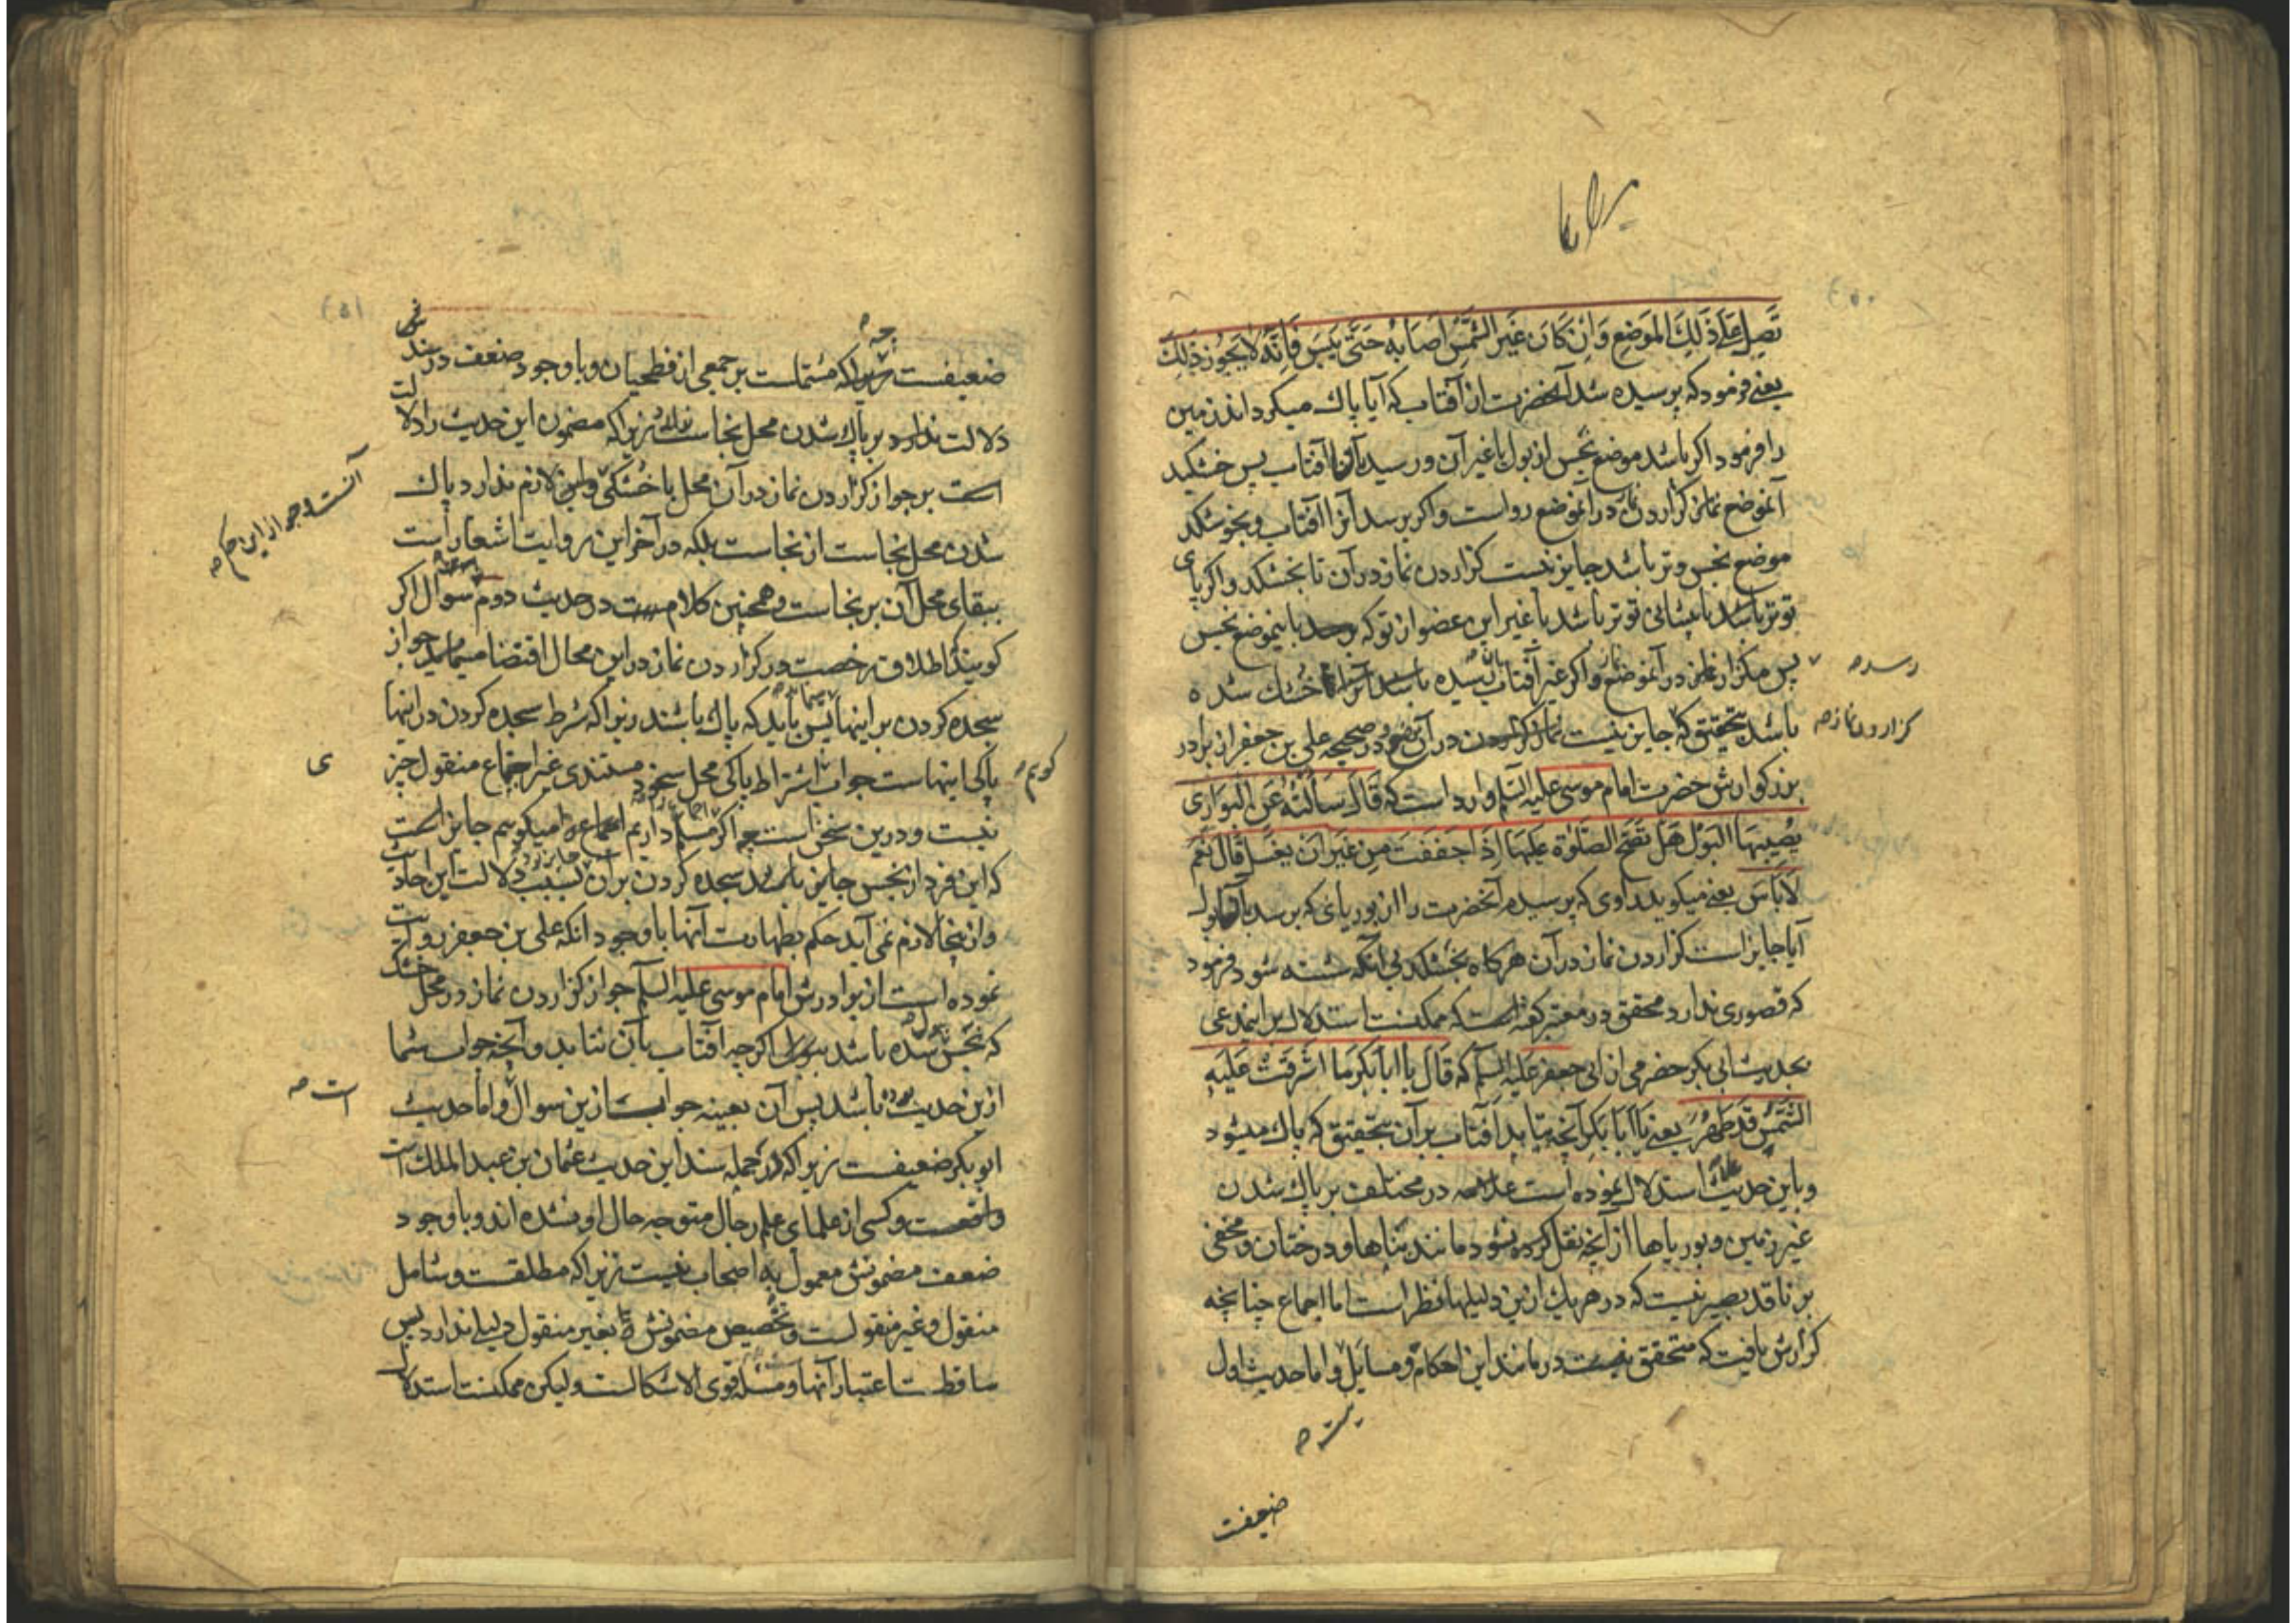 تَصِلَ عَلَى ذَلِكَ المَوضِعِ وَاِنْ كَانَ غَيرَ الشَّمْسِ اَصَابَهُ حَتَّى يَبِسَ فَاِنَّهُ لَا يَجُوزُ ذَلِكَ
یعنے فرمود که پرسیده شد آنحضرت از آفتاب که آیا پاک میکرداند زمین
را فرمود اکر باشد موضع نجس از بول یا غیر آن و رسید آفتاب پس خشکید
آنموضع کزاردن نماز در آنموضع رواست و اکر برسد آنرا آفتاب و نخوشکد
موضع نجس و تر باشد جایز نیست کزاردن نماز در آن تا بخشکد و اکر پای
تو تر باشد یا پیشانی تو تر باشد یا غیر این عضو از تو که باینموضع نجس
رسد
پس مکزار نماز در آنموضع و اکر غیر آفتاب باشد خشک شده
باشد بتحقیق که جایز نیست در آن موضع و در صحیحه علی بن جعفر از برادر
کزاردن نماز
بزرکوارش حضرت امام موسی علیه السلم وارد است که قَالَ سَاَلْتُهُ عَنِ البَوَارِی
يُصِيبُهَا البَوْلُ هَلْ تَصِحُّ الصَّلَوةُ عَلَيهَا اِذَا جَفَفَتْ مِن غَيرِ اَنْ يُغسَلَ قَالَ نَعَم
لَا بَاسَ یعنے میکوید راوی که پرسیدم آنحضرت را از بوریائی که برسد بآن بول
آیا جایز است کزاردن نماز در آن هرکاه بخشکد بی آنکه شسته شود فرمود
که قصوری ندارد محقق در معتبر کفته است که ممکنست استدلال بر اینمدعی
بحدیث ابی بکر حضرمی از ابی جعفر علیه السلم که قَالَ یا اَبَا بَکرٍ مَا اَشرَقَتْ عَلَیهِ
الشَّمْسُ قَد طَهُرَ یعنے یَا اَبَا بَکر آنچه بتابد آفتاب بر آن بتحقیق که پاک میشود
و باین حدیث استدلال نموده است علامه در مختلف بر پاک شدن
غیر زمین و بوریاها از آنچه نقل کرده نشود مانند بناها و درختان و مخفی
بر ناقد بصیر نیست که در هر یک ازین دلیلها نظر است اما اجماع چنانچه
کزارش یافت که متحقق نیست در مانند این احکام و مسایل و اما حدیث اول
ضعیفست
ضعیفست که مشتملست بر جمعی از فطحیان و باوجود ضعف در سند
دلالت ندارد بر پاک شدن محل نجاست زیرا که مضمون این حدیث را دلالت
است بر جواز کزاردن نماز در آن محل با خشکی و این لازم ندارد پاک
شدن محل نجاست از نجاست بلکه در آخر این روایت اشعار است
ببقای محل آن بر نجاست و همچنین کلام در حدیث دوم سوال اکر
کویند اطلاق رخصت در کزاردن نماز در این محال اقتضا مینماید جواز
سجده کردن بر اینها پس باید که پاک باشند زیرا که شرط سجده کردن در اینها
پاکی اینهاست جواب اشتراط پاکی محل سجود مستندی غیر اجماع منقول چیزی
کویم
نیست و درین سخن است میکویم جایز است
که این فرد از نجس جایز باشد سجده کردن بر آن بسبب دلالت این احادیث
و از اینجا لازم نمی آید حکم بطهارت آنها باوجود آنکه علی بن جعفر روایت
نموده است از برادرش امام موسی علیه السلم جواز کزاردن نماز در محل خشک
که نجس شده باشد ببول اکرچه آفتاب بآن نتابد و آنچه جواب شما
ازین حدیث باشد پس آن بعینه جواب ازین سوال و اما حدیث
است
ابوبکر ضعیفست زیرا که در جمله سند این حدیث عثمان بن عبد الملک است
واقعست و کسی از علمای علم رجال متوجه حال او نشده اند و باوجود
ضعف مضمونش معمول به اصحاب نیست زیرا که مطلقست و شامل
منقول و غیر منقولست و تخصیص مضمونش بغیر منقول دلیلے ندارد پس
ساقطست اعتبار آنها و مسئله قوی الاشکالست و لیکن ممکنست استدلال